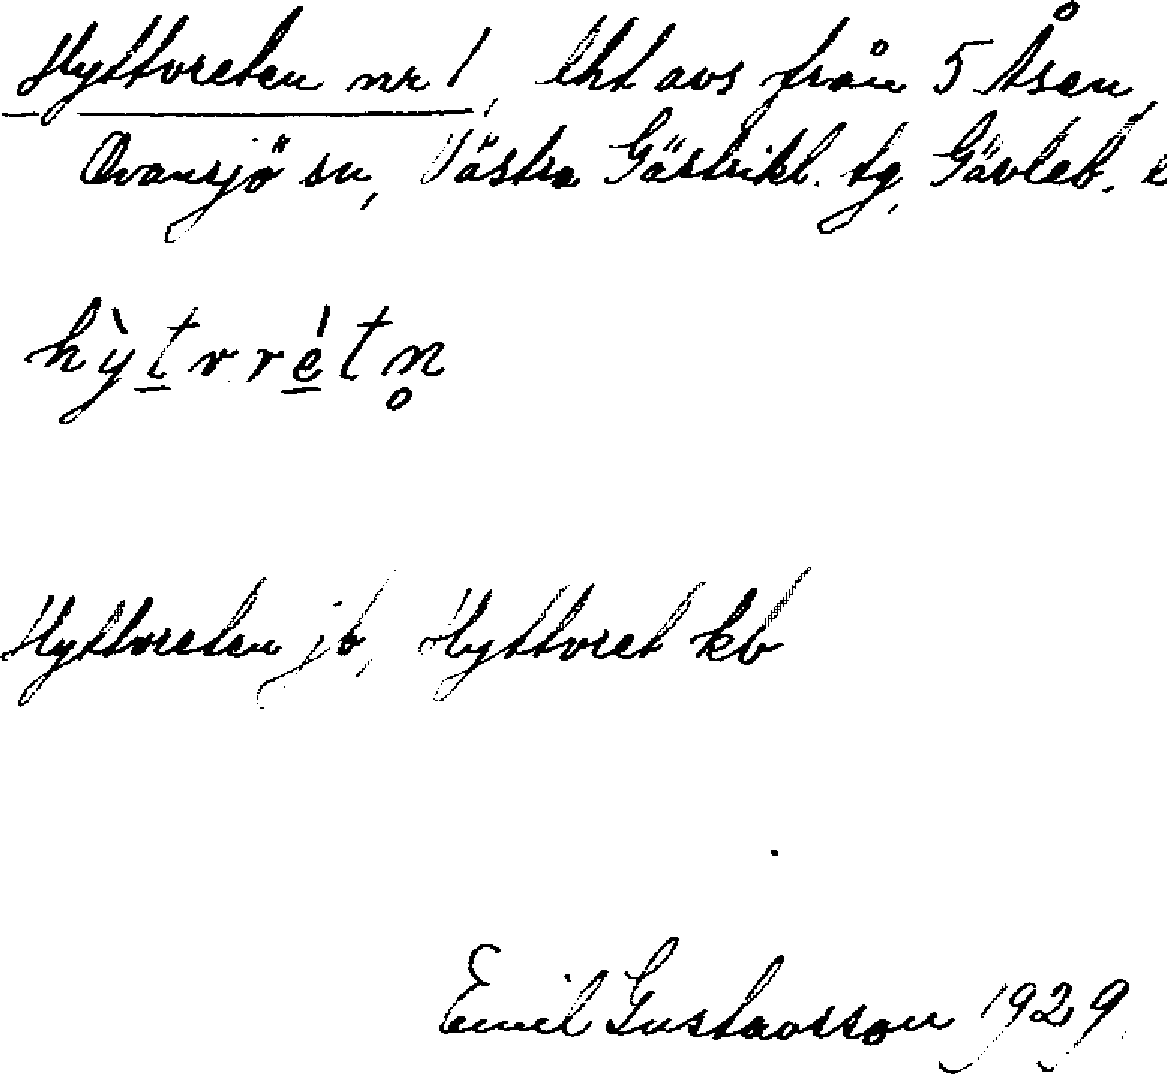 Hyttvreten nr 1, lht avs från 5 Åsen,
Ovansjö sn, Västra Gästrikl. tg, Gävleb. l
hỳt̲vrét̲n̥
Hyttvreten jb, Hyttvret kb
Emil Gustavsson 1929.